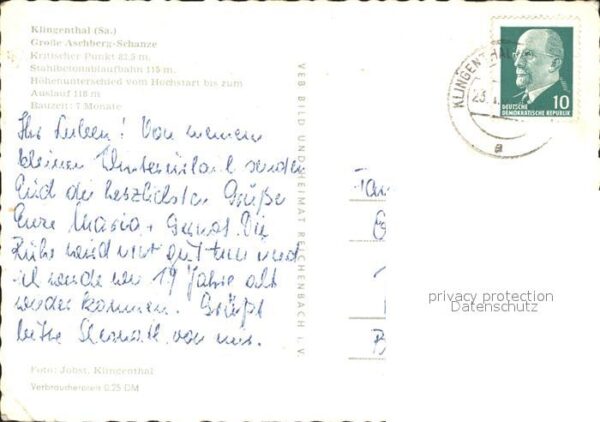 Klingenthal (Sa.)
Große Aschberg-Schanze
Kritischer Punkt 82,5 m,
Stahlbetonablaufbahn 115 m,
Höhenunterschied vom Hochstart bis zum
Auslauf 118 m
Bauzeit: 7 Monate
Ihr Lieben! Von meinem
kleinen Winterurlaub senden
Euch die herzlichsten Grüße
Eure Maria + Gernot. Die
Ruhe wird mir gut tun und
ich werde wie 19 Jahre alt
wieder kommen. Grüßt
bitte von mir.
Foto: Jobst, Klingenthal
Verbraucherpreis 0,25 DM
VEB BILD UND HEIMAT REICHENBACH i. V.
KLINGENTHAL
23.
a
10
DEUTSCHE
DEMOKRATISCHE REPUBLIK
privacy protection
Datenschutz